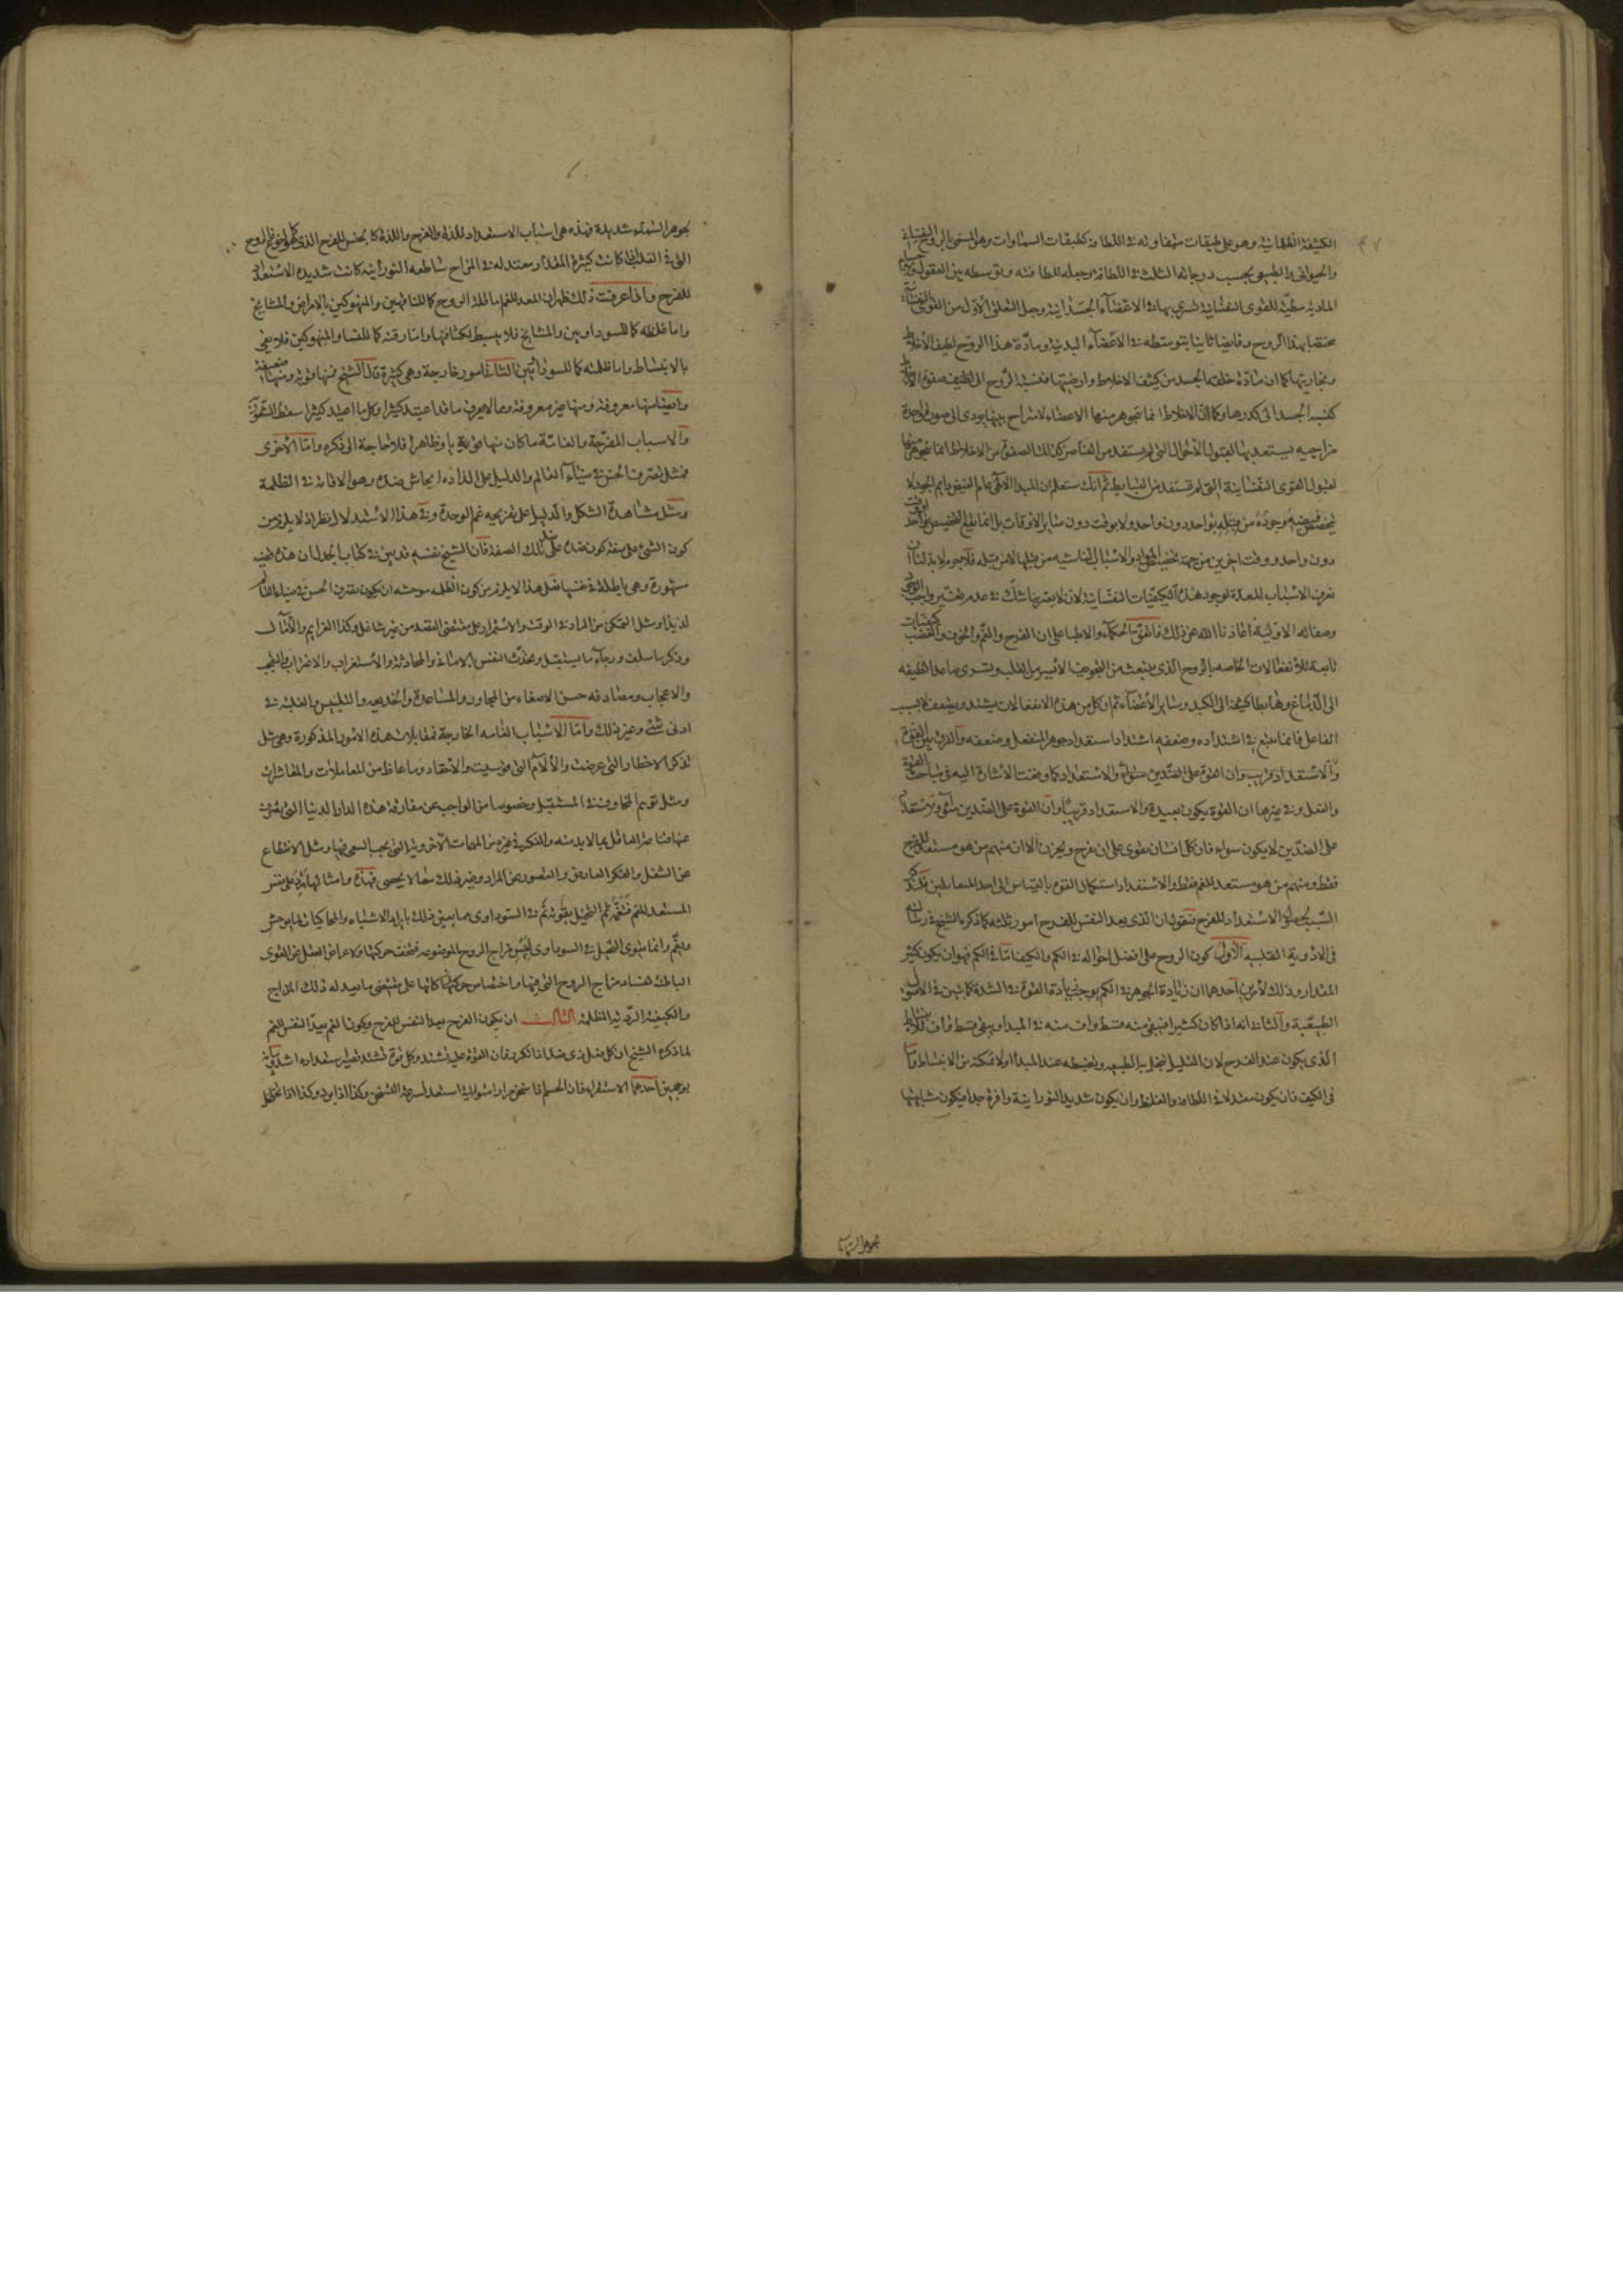 الكثيفة الظلمانية وهو على طبقات متفاوتة في اللطافة كطبقات السماوات وهو المسمى بالروح النفساني
والحيواني والطبيعي بحسب درجاته الثلث في اللطافة وجعله للطافته وتوسطه بين العقول والاجسام
المادية مطية للقوى النفسانية تسري بها في الاعضاء الجسدانية وجعل التعلق الاول من القوى النفسانية
مختصا بهذا الروح وفايضا ثانيا بتوسطه في الاعضاء البدنية ومادة هذا الروح لطيف الاخلاط
وبخاريتها كما ان مادة خلقة الجسد من كثيف الاخلاط وارضيتها فنسبة الروح الى لطيف صفو الاخلاط
كنسبة الجسد الى كدرها وكما ان الاخلاط انما تتجوهر منها الاعضاء لامتزاج بينها يودي الى صورة واحدة
مزاجية يستعد بها لقبول الاحوال التي لم يستفد من العناصر كذلك الصفو من الاخلاط انما تتجوهر منها
لقبول القوى النفسانية التي لم تستفد من البسايط ثم انك ستعلم ان المبدا الاقصى عالم الفيض دايم الجود لا
يتخصص فيضه وجوده من قبله بواحد دون واحد ولا بوقت دون ساير الاوقات بل انما يقع التخصيص بواحد
دون واحد ووقت اخر من جهة تخصيص المواد والاسباب الناشية من قبلها لا من قبله فلاجرم لا بد لنا ان
نعرف الاسباب المعدة لوجود هذه الكيفيات النفسانية لان لا يعترينا شك في عدم تغير واجب الوجود
وصفاته الاولية اعاذنا الله عن ذلك فاتفق الحكماء والاطبا على ان الفرح والغم والخوف والغضب كيفيات
تابعة للانفعالات الخاصة بالروح الذي ينبعث من التجويف الايسر من القلب ويسري صاعدا لطيفه
الى الدماغ وهابطا كثيفه الى الكبد وساير الاعضاء ثم ان كل من هذه الانفعالات يشتد ويضعف لا بسبب
الفاعل فانما يتبع في اشتداده وضعفه اشتداد استعداد جوهر المنفعل وضعفه والفرق بين القوة
والاستعداد قريب وان القوة على الضدين سواء والاستعداد كما وقعت الاشارة اليه في مباحث القوة
والفعل وفي غيرها ان القوة يكون بعيدة والاستعداد قريبا وان القوة على الضدين سواء والاستعداد
على الضدين لا يكون سواء فان كل انسان يقوى على ان يفرح ويحزن الا ان منهم من هو مستعد للفرح
فقط ومنهم من هو مستعد للغم فقط والاستعداد استكمال القوة بالقياس الى احد المتقابلين فلنذكر
السبب لحصول الاستعداد للفرح فنقول ان الذي يعد النفس للفرح امور ثلثة كما ذكره الشيخ في رسالته
في الادوية القلبية الاول كون الروح على افضل احواله في الكم والكيف اما في الكم فهو ان يكون كثير
المقدار وذلك لامرين احدهما ان زيادة الجوهر في الكم يوجب زيادة القوة في الشدة كما تبين في الاصول
الطبيعية والثاني انه اذا كان كثيرا فيبقى منه قسط واف منه في المبدا ويبقى قسط واف للانبساط
الذي يكون عند الفرح لان القليل يبخل به الطبيعة وتضبطه عند المبدا ولا تمكنه من الانبساط واما
في الكيف فان يكون معتدلا في اللطافة والغلظ وان يكون شديد النورانية وافرة جدا فيكون مشابهتها
بجوهر السماء
بجوهر السماء شديدة فهذه هي اسباب الاستعداد للذة والفرح واللذة كالجنس للفرح الذي
التي في القلب اذا كانت كثيرة المقدار معتدلة في المزاج ساطعة النورانية كانت شديدة الاستعداد
للفرح واذا عرفت ذلك ظهر ان المعد للغم اما قلة الروح كما للناقهين والمنهوكين بالامراض والمشايخ
واما غلظه كما للسوداويين والمشايخ فلا ينبسط لكثافتها واما رقته كما للنساء والمنهوكين فلا يفي
بالانبساط واما ظلمته كما للسوداويين الثاني امور خارجة وهي كثيرة قال الشيخ فمنها قوية ومنها ضعيفة
وايضا منها معروفة ومنها غير معروفة ومما لا يعرف ما قد اعتيد كثيرا وكل ما اعتيد كثيرا سقط الشعور
والاسباب المفرحة والغامة ما كان منها قوية او ظاهرا فلا حاجة الى ذكره واما الاخرى
فمثل تصرف الحس في ضياء العالم والدليل على الذاذه ايحاش ضده وهو الاقامة في الظلمة
ومثل مشاهدة الشكل والدليل على تفريحه غم الوحدة وفي هذا الاستدلال نظر اذ لا يلزم من
كون الشئ على صفة كون ضده على ضد تلك الصفة فان الشيخ نفسه قد بين في كتاب الجدل ان هذه قضية
مشهورة وهي باطلة في نفسها فعلى هذا لا يلزم من كون الظلمة موحشة ان يكون تصرف الحس في ضياء العالم
لذيذا ومثل التمكن من المراد في الوقت والاستمرار على مقتضى القصد من غير شاغل وكذا العزايم والآمال
وذكر ما سلف ورجاء ما يستقبل وتحدث النفس بالاماني والمحادثة والاستغراب والاغراب والتعجب
والاعجاب ومصادفة حسن الاصغاء من المحاور والمساعدة والخديعة والتلبيس والغلبة في
ادنى شئ وغير ذلك واما الاسباب الغامة الخارجة فمقابلات هذه الامور المذكورة وهي مثل
تذكر الاخطار التي عرضت والآلام التي قوسيت والاحقاد وما غاظ من المعاملات والمعاشرات
ومثل توهم المخاوف في المستقبل وخصوصا من الواجب عن مفارقة هذه الدار الدنيا التي يصرف
عنها قناعة العاقل بما لا بد منه والفكر في غيره من المهمات الاخروية التي يجب السعي فيها ومثل الانقطاع
عن الشغل والفكر العارض والقصور عن المراد وغير ذلك مما لا يحصى فهذه وامثالها ترد على نفس
المستعد للغم فتغمه ثم التخيل يقويه ثم في السوداوي مما يعين ذلك بايراد الاشباه والمحاكيات لما يوحش
ويغم وانما يقوى التخيل في السوداوي ليبس مزاج الروح الموضوعة فتخف حركتها ولاعراض العقل عن القوى
الباطنة لفساد مزاج الروح التي فيها واختصاص حركاتها كانها على مقتضى ما يعد له ذلك المزاج
والكيفية الردية المظلمة الثالث ان يكون الفرح يعد النفس للفرح ويكون الغم يعد النفس للغم
لما ذكره الشيخ ان كل فعل ذي ضد اذا تكرر فان القوة عليه تشتد وكل قوة تشتد تصير استعداده اشد
بوجهين احدهما الاستقراء فان الجسم اذا سخن مرارا متوالية استعد لسرعة التسخن وكذا اذا برد وكذا اذا تخلخل